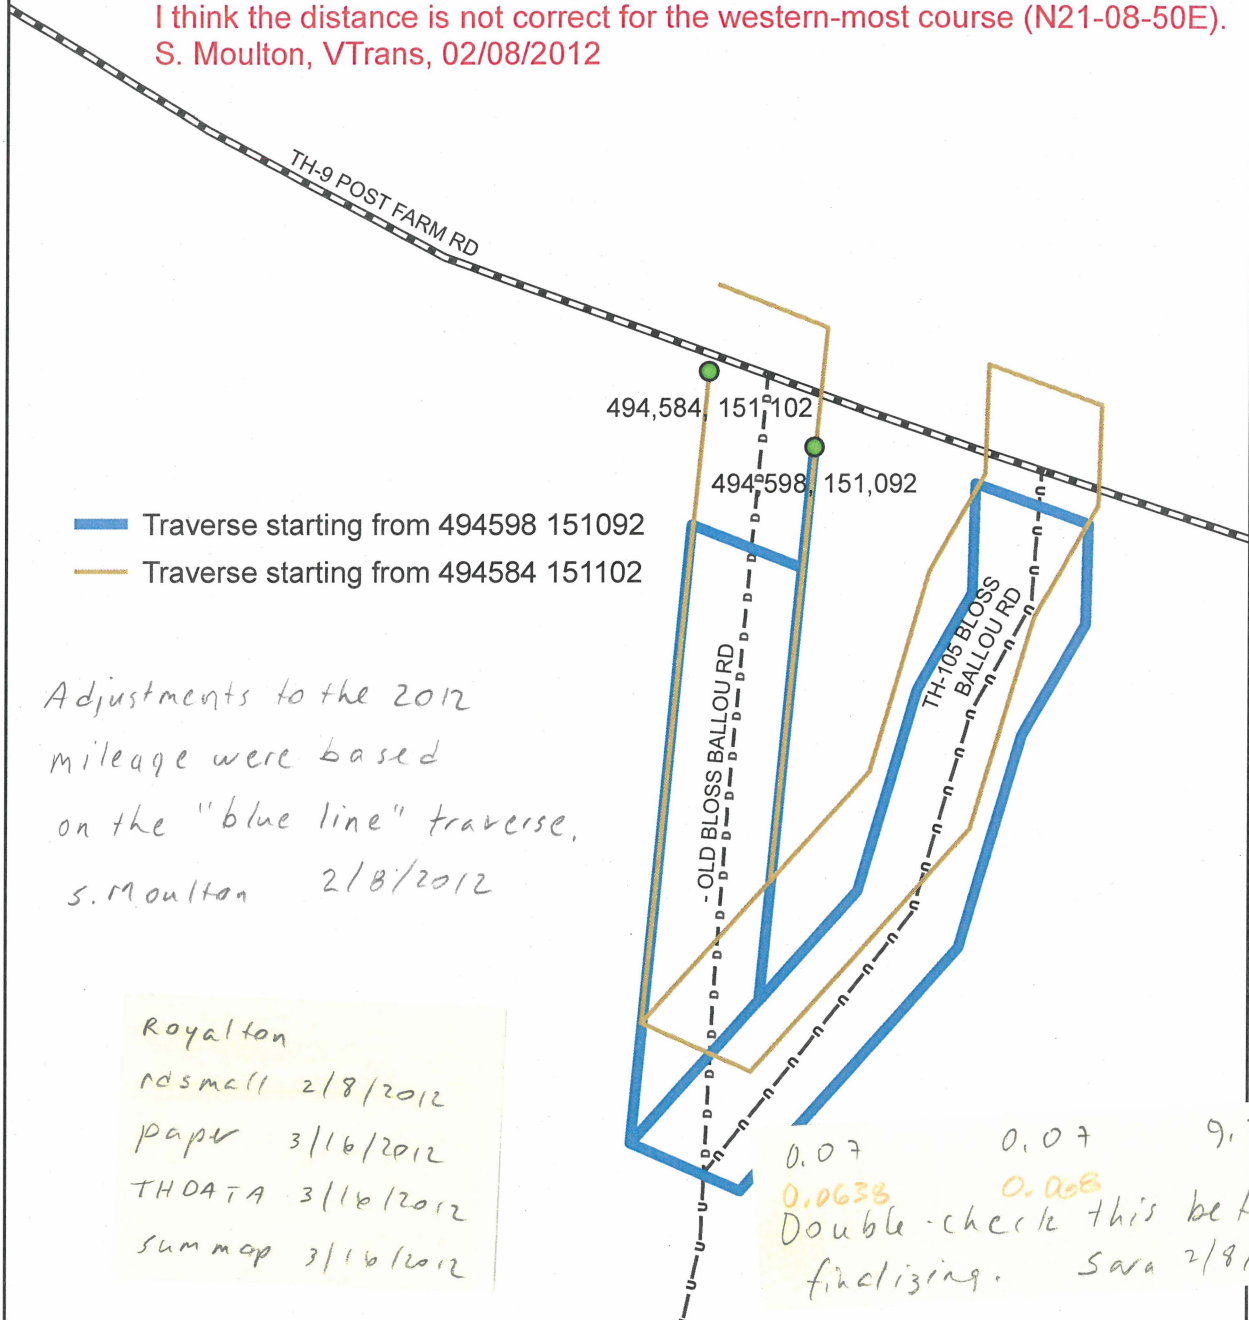 I think the distance is not correct for the western-most course (N21-08-50E).
S. Moulton, VTrans, 02/08/2012
TH-9 POST FARM RD
494,584, 151,102
494,598, 151,092
Traverse starting from 494598 151092
Traverse starting from 494584 151102
- OLD BLOSS BALLOU RD
TH-105 BLOSS
BALLOU RD
Adjustments to the 2012
mileage were based
on the "blue line" traverse.
S. Moulton 2/8/2012
Royalton
rdsmall 2/8/2012
paper 3/16/2012
THDATA 3/16/2012
summap 3/16/2012
0.07 0.07 9.
0.0638 0.068
Double-check this
finalizing. Sara 2/8/